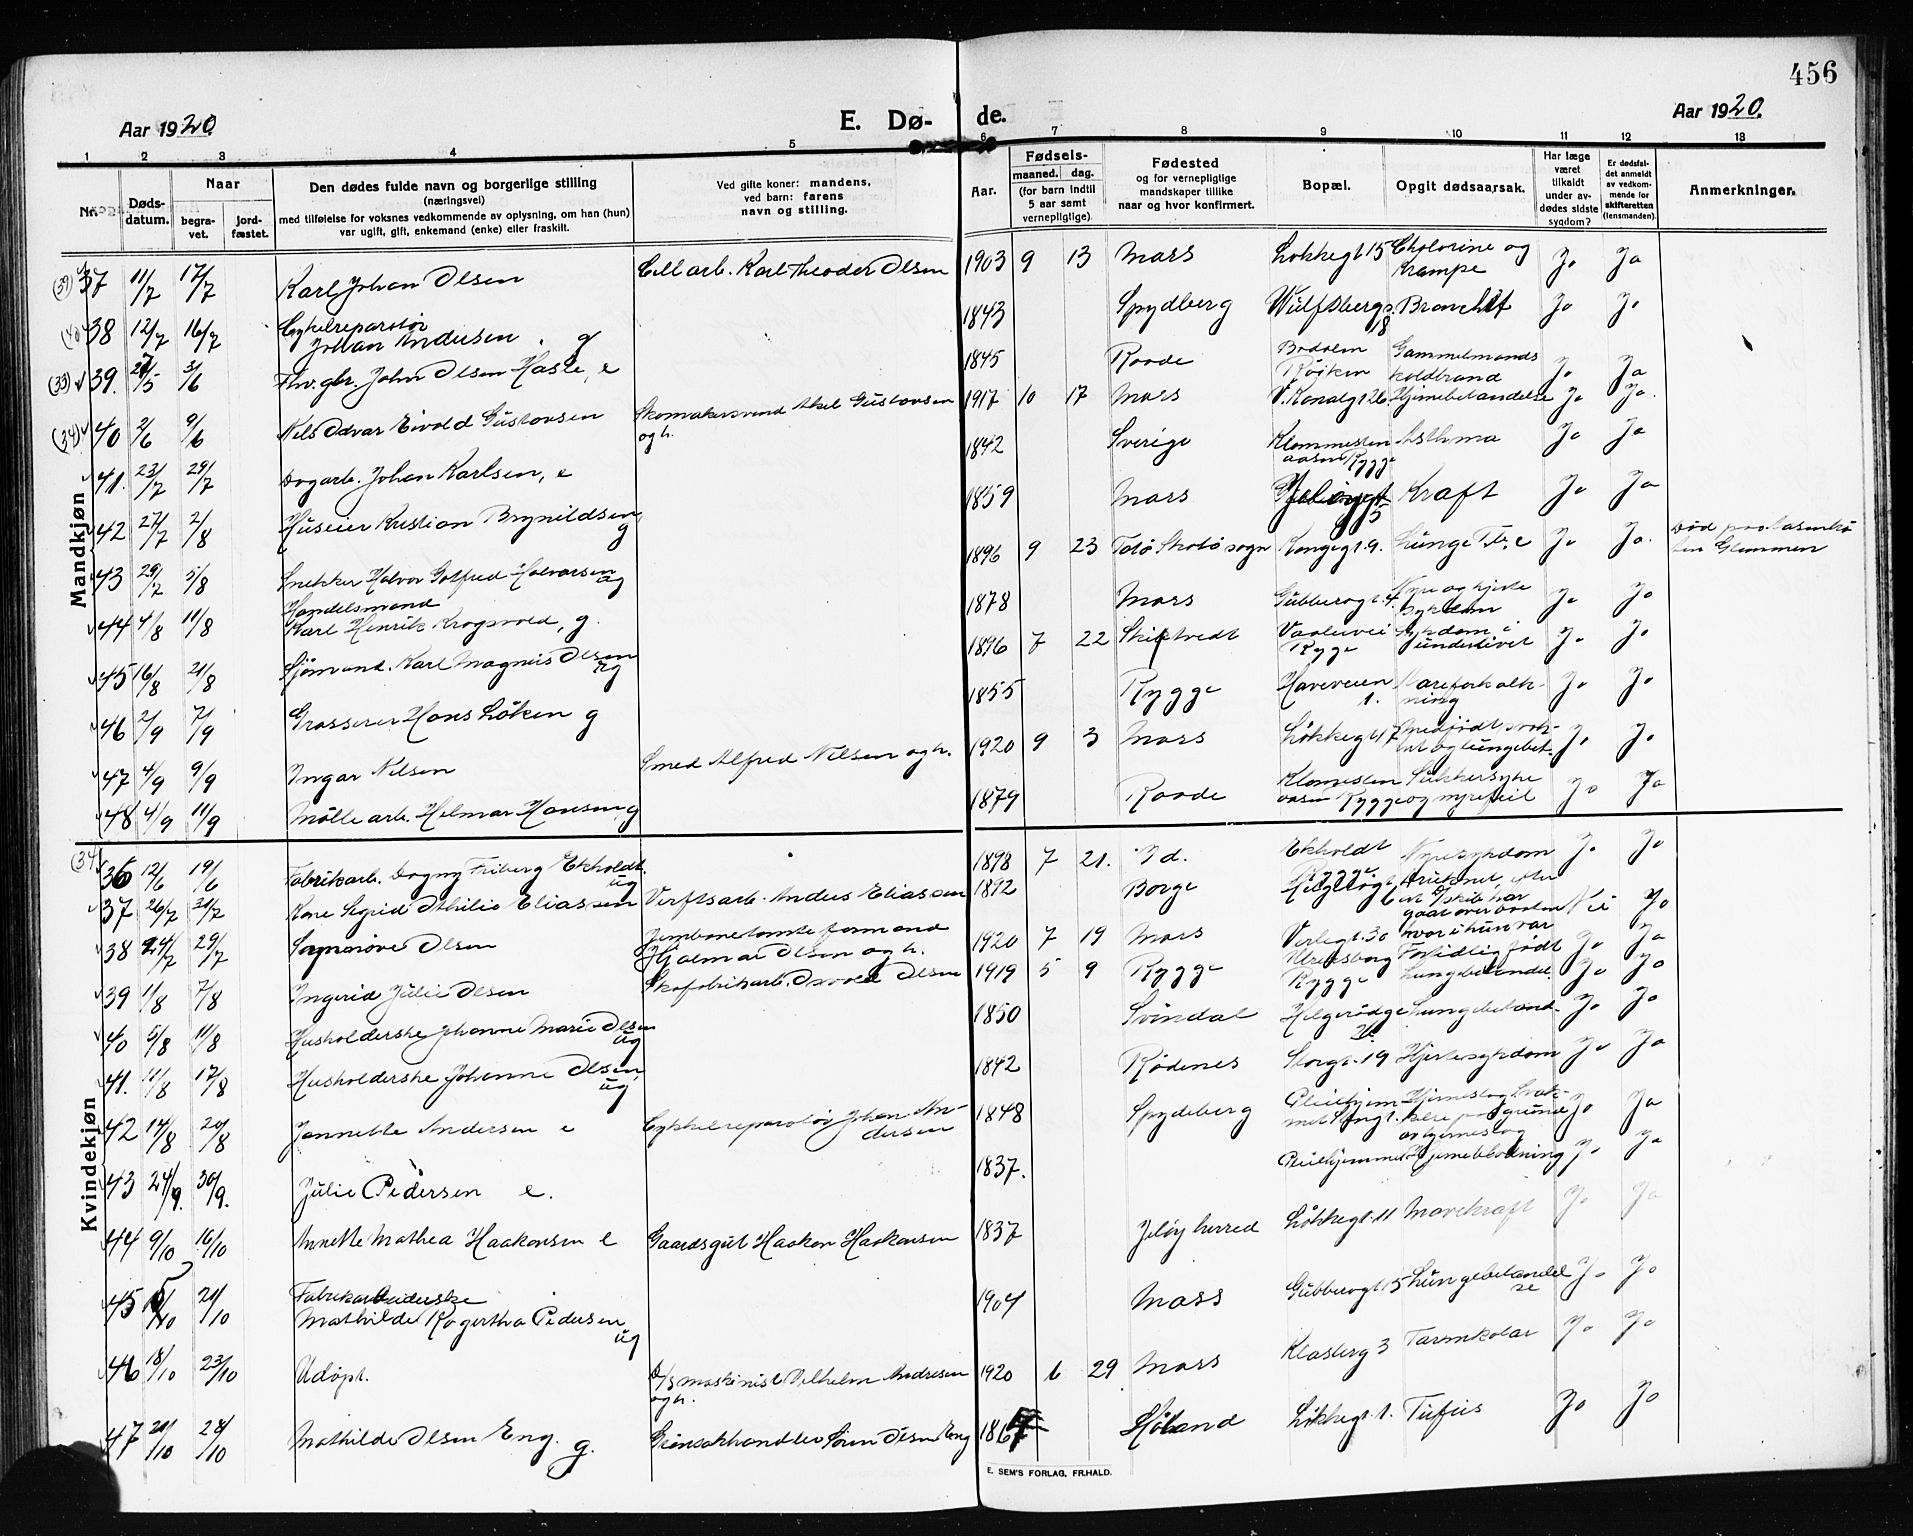 456
Aar 1920.
E. Dø- de.
Aar 1920.
1 2 3 4 5 6 7 8 9 10 11 12 13
Nr.
Døds-datum.
Naar
begra-vet.
jord-fæstet.
Den dødes fulde navn og borgerlige stilling
(næringsvei)
med tilføielse for voksnes vedkommende av oplysning, om han (hun)
var ugift, gift, enkemand (enke) eller fraskilt.
Ved gifte koner: mandens,
ved barn: farens
navn og stilling.
Aar.
Fødsels-
maaned. dag.
(for barn indtil
5 aar samt
vernepligtige).
Fødested
og for vernepligtige
mandskaper tillike
naar og hvor konfirmert.
Bopæl.
Opgit dødsaarsak.
Har læge
været
tilkaldt
under av-
dødes sidste
sygdom?
Er dødsfal-
det anmeldt
av vedkom-
mende for
skifteretten
(lensmanden).
Anmerkninger.
Mandkjøn
(39) 37 11/7 17/7 Karl Johan Olsen Cell arb. Karl Theodor Olsen 1903 9 13 Moss Løkkegt 15 Cholorine og Krampe Ja Ja
38 12/7 16/7 Cykelreparatør Johan Andersen. g 1843 Spydberg Wulfsbergs. 18 Bronchit Ja Ja
(33) 39. 27/5 3/6 Fhv. gbr. John Olsen Hasle, e 1845 Raade Bodalen Røiken Gammelmands koldbrand Ja Ja
(34) 40 2/6 9/6 Nils Odvar Eivold Gustavsen Skomakersvend Aksel Gustavsen og h. 1917 10 17 Moss V. Kanalgt 26. Hjernebetændelse Ja Ja.
41. 23/7 29/7 Dagarb. Johan Karlsen, e 1842 Sverige Klommesten aasen Rygge Asthma Ja Ja
42 27/7 2/8 Huseier Kristian Brynildsen, g 1859 Moss 5 Kraft Ja Ja
43 29/7 5/8 Snekker Halvor Gotfred Halvorsen ug 1896 9 23 Totø Skotø sogn Kongegt. 9. Lunge Ja Ja. Glemmen
44 4/8 11/8 Handelsmand Karl Henrik Krogsvold, g. 1878 Moss Gubberogt. 4. Nyre og hjerte sykdom Ja Ja
45 16/8 21/8 Sjømand. Karl Magnus Olsen ug 1896 7 22 Skiptvedt Vaalervei Rygge Sykdom i underlivet Ja Ja
46 2/9 7/9 Grosserer Hans Løken g 1855 Rygge Haveveien 1. Aareforkalkning Ja Ja
47 4/9 9/9 Ingar Nilsen Smed Alfred Nilsen og h. 1920 9 3 Moss Løkkegt 17 Medfødt svakhet og lungebet. Ja Ja
48 4/9 11/9 Mølle arb. Helmar Hansen, g 1879 Raade Klomesten aasen Rygge Sukkersyke og nyrefeil Ja Ja
Kvindekjøn
(34) 36 12/6 19/6 Fabrikarb. Dagny Friberg Ekholdt. ug 1898 7 21. Id. Ekholdt Rygge Nyresykdom Ja Ja
37 26/7 31/7 Kone Sigrid Othilie Eliassen Verftsarb. Anders Eliassen 1892 Borge Helgerøgt. 6 Druknet, efter at D/skib har gaat over baaten hvor i hun var Nei Ja
38 24/7 29/7 Olsen Jernbanetomte formand Hjalmar Olsen og h. 1920 7 19 Moss Verlegt. 30 Fortidlig født Ja Ja
39 1/8 7/8 Ingerid Julie Olsen Skofabrikarb. Osvald Olsen 1919 5 9 Rygge Ulredsborg Rygge Lungebetændel. Ja Ja
40 5/8 11/8 Husholderske Johanne Marie Olsen ug 1850 Svindal Helgerødgt Lungebetænd. Ja Ja
41. 11/8 17/8 Husholderske Johanne Olsen, ug 1842 Rødenes Storgt. 19 Hjertesykdom Ja Ja
42 14/8 20/8 Jannette Andersen e Cykkelreparatør Johan Andersen 1848 Spydeberg Pleiehjemmet Hjerneslag Svakkelse paa grund av hjerneslag Ja Ja
43 24/9. 30/9. Julie Pedersen e. 1837. Pleiehjemmet Hjerneblødning Ja. Ja
44 9/10 16/10 Annette Mathea Haakonsen e Gaardsgut Haakon Haakonsen 1837 Jeløy herred Løkkegt. 11 Mavekraft Ja Ja
45 15/10 21/10 Fabrikarbeiderske Mathilde Ragertha Pedersen ug 1904 Moss Gubberogt 15 Lungebetændelse Ja Ja
46 18/10 23/10 Udøpt. D/s maskinist Vilhelm Andresen og h. 1920 6 29 Moss Klosterg 3 Tarmkatar Ja Ja
47 21/10 28/10 Mathilde Olsen Eng. g. Grønsakhandler Søren Olsen Eng 1867 Høland Løkkegt. 1. Tyfus Ja Ja
E. SEM'S FORLAG, FR.HALD.